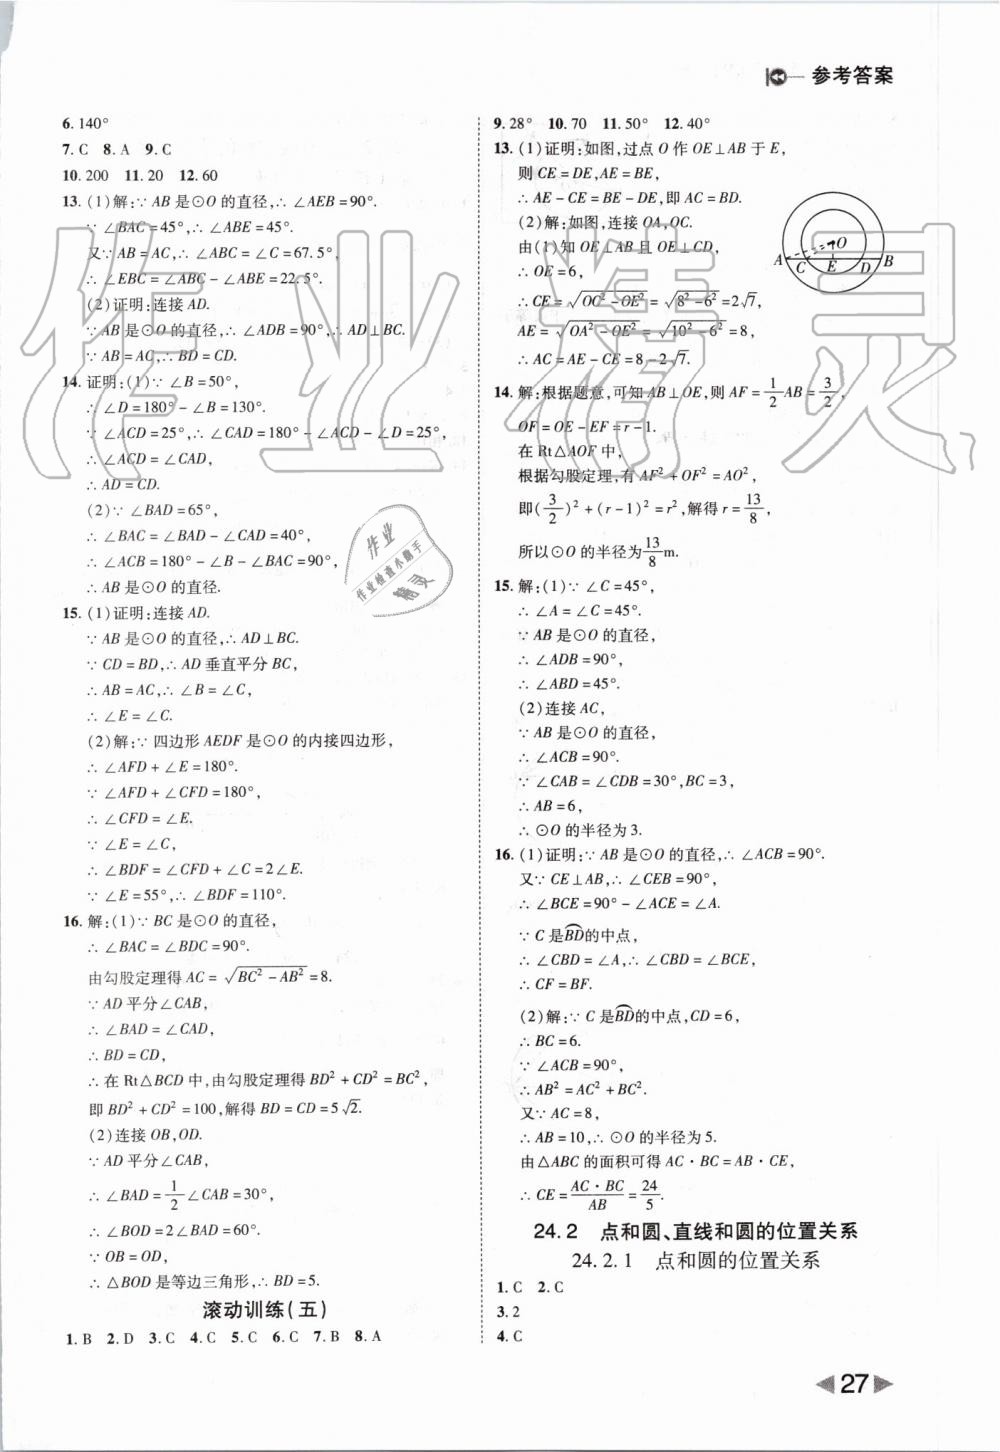 参考答案
6. 140°
7. C 8. A 9. C
10. 200 11. 20 12. 60
13. (1)解:∵ AB 是⊙O 的直径,∴ ∠AEB = 90°.
∵ ∠BAC = 45°,∴ ∠ABE = 45°.
又∵ AB = AC,∴ ∠ABC = ∠C = 67.5°
∴ ∠EBC = ∠ABC - ∠ABE = 22.5°.
(2)证明:连接 AD.
∵ AB 是⊙O 的直径,∴ ∠ADB = 90°,∴ AD⊥BC.
∵ AB = AC,∴ BD = CD.
14. 证明:(1)∵ ∠B = 50°,
∴ ∠D = 180° - ∠B = 130°.
∵ ∠ACD = 25°,∴ ∠CAD = 180° - ∠ACD - ∠D = 25°,
∴ ∠ACD = ∠CAD.
∴ AD = CD.
(2)∵ ∠BAD = 65°,
∴ ∠BAC = ∠BAD - ∠CAD = 40°,
∴ ∠ACB = 180° - ∠B - ∠BAC = 90°,
∴ AB 是⊙O 的直径.
15. (1)证明:连接 AD.
∵ AB 是⊙O 的直径,∴ AD⊥BC.
∵ CD = BD,∴ AD 垂直平分 BC,
∴ AB = AC,∴ ∠B = ∠C,
∴ ∠E = ∠C.
(2)解:∵ 四边形 AEDF 是⊙O 的内接四边形,
∴ ∠AFD + ∠E = 180°.
∵ ∠AFD + ∠CFD = 180°,
∴ ∠CFD = ∠E.
∵ ∠E = ∠C,
∴ ∠BDF = ∠CFD + ∠C = 2∠E.
∵ ∠E = 55°,∴ ∠BDF = 110°.
16. 解:(1)∵ BC 是⊙O 的直径,
∴ ∠BAC = ∠BDC = 90°.
由勾股定理得 AC = √(BC² - AB²) = 8.
∵ AD 平分∠CAB,
∴ ∠BAD = ∠CAD,
∴ BD = CD,
∴ 在 Rt△BCD 中,由勾股定理得 BD² + CD² = BC²,
即 BD² + CD² = 100,解得 BD = CD = 5√2.
(2)连接 OB,OD.
∵ AD 平分∠CAB,
∴ ∠BAD = 1/2 ∠CAB = 30°,
∴ ∠BOD = 2∠BAD = 60°.
∵ OB = OD,
∴ △BOD 是等边三角形,∴ BD = 5.
滚动训练(五)
1. B 2. D 3. C 4. C 5. C 6. C 7. B 8. A
9. 28° 10. 70 11. 50° 12. 40°
13. (1)证明:如图,过点 O 作 OE⊥AB 于 E,
则 CE = DE,AE = BE,
∴ AE - CE = BE - DE,即 AC = BD.
(2)解:如图,连接 OA,OC.
由(1)知 OE⊥AB 且 OE⊥CD,
∴ OE = 6,
∴ CE = √(OC² - OE²) = √(8² - 6²) = 2√7,
AE = √(OA² - OE²) = √(10² - 6²) = 8,
∴ AC = AE - CE = 8 - 2√7.
O
A C E D B
14. 解:根据题意,可知 AB⊥OE,则 AF = 1/2 AB = 3/2,
OF = OE - EF = r - 1.
在 Rt△AOF 中,
根据勾股定理,有 AF² + OF² = AO²,
即(3/2)² + (r - 1)² = r²,解得 r = 13/8,
所以⊙O 的半径为 13/8 m.
15. 解:(1)∵ ∠C = 45°,
∴ ∠A = ∠C = 45°.
∵ AB 是⊙O 的直径,
∴ ∠ADB = 90°,
∴ ∠ABD = 45°.
(2)连接 AC,
∵ AB 是⊙O 的直径,
∴ ∠ACB = 90°.
∵ ∠CAB = ∠CDB = 30°,BC = 3,
∴ AB = 6,
∴ ⊙O 的半径为 3.
16. (1)证明:∵ AB 是⊙O 的直径,∴ ∠ACB = 90°.
又∵ CE⊥AB,∴ ∠CEB = 90°,
∴ ∠BCE = 90° - ∠ACE = ∠A.
∵ C 是BD⌒的中点,
∴ ∠CBD = ∠A,∴ ∠CBD = ∠BCE,
∴ CF = BF.
(2)解:∵ C 是BD⌒的中点,CD = 6,
∴ BC = 6.
∵ ∠ACB = 90°,
∴ AB² = AC² + BC².
又∵ AC = 8,
∴ AB = 10,∴ ⊙O 的半径为 5.
由△ABC 的面积可得 AC · BC = AB · CE,
∴ CE = AC · BC / AB = 24/5.
24.2 点和圆、直线和圆的位置关系
24.2.1 点和圆的位置关系
1. C 2. C
3. 2
4. C
27
作业精灵
作业
作业检查小助手
精灵